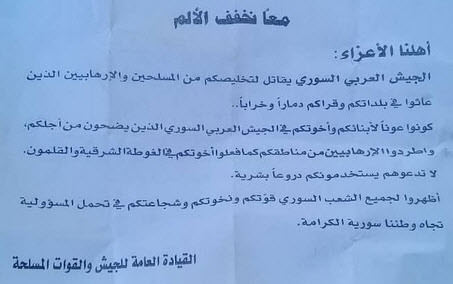 معاً نخفف الألم
أهلنا الأعزاء:
الجيش العربي السوري يقاتل لتخليصكم من المسلحين والإرهابيين الذين
عاثوا في بلداتكم وقراكم دماراً وخراباً..
كونوا عوناً لأبنائكم وأخوتكم في الجيش العربي السوري الذين يضحون من أجلكم،
واطردوا الإرهابيين من مناطقكم كما فعلوا أخوتكم في الغوطة الشرقية والقلمون.
لا تدعوهم يستخدمونكم دروعاً بشرية.
أظهروا لجميع الشعب السوري قوتكم ونخوتكم وشجاعتكم في تحمل المسؤولية
تجاه وطننا سورية الكرامة.
القيادة العامة للجيش والقوات المسلحة